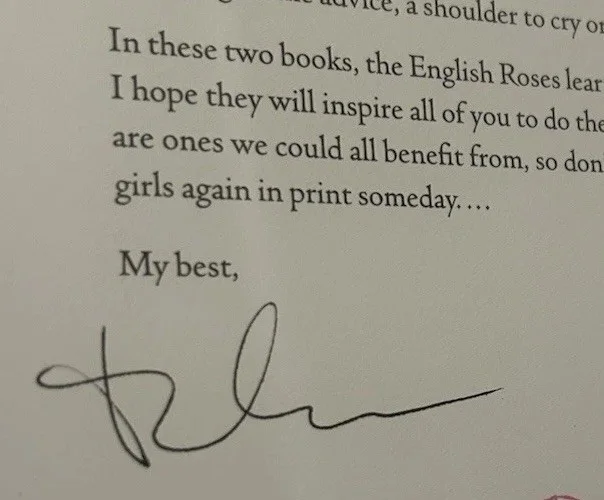 advice, a shoulder to cry on
In these two books, the English Roses lear
I hope they will inspire all of you to do the
are ones we could all benefit from, so don
girls again in print someday....
My best,